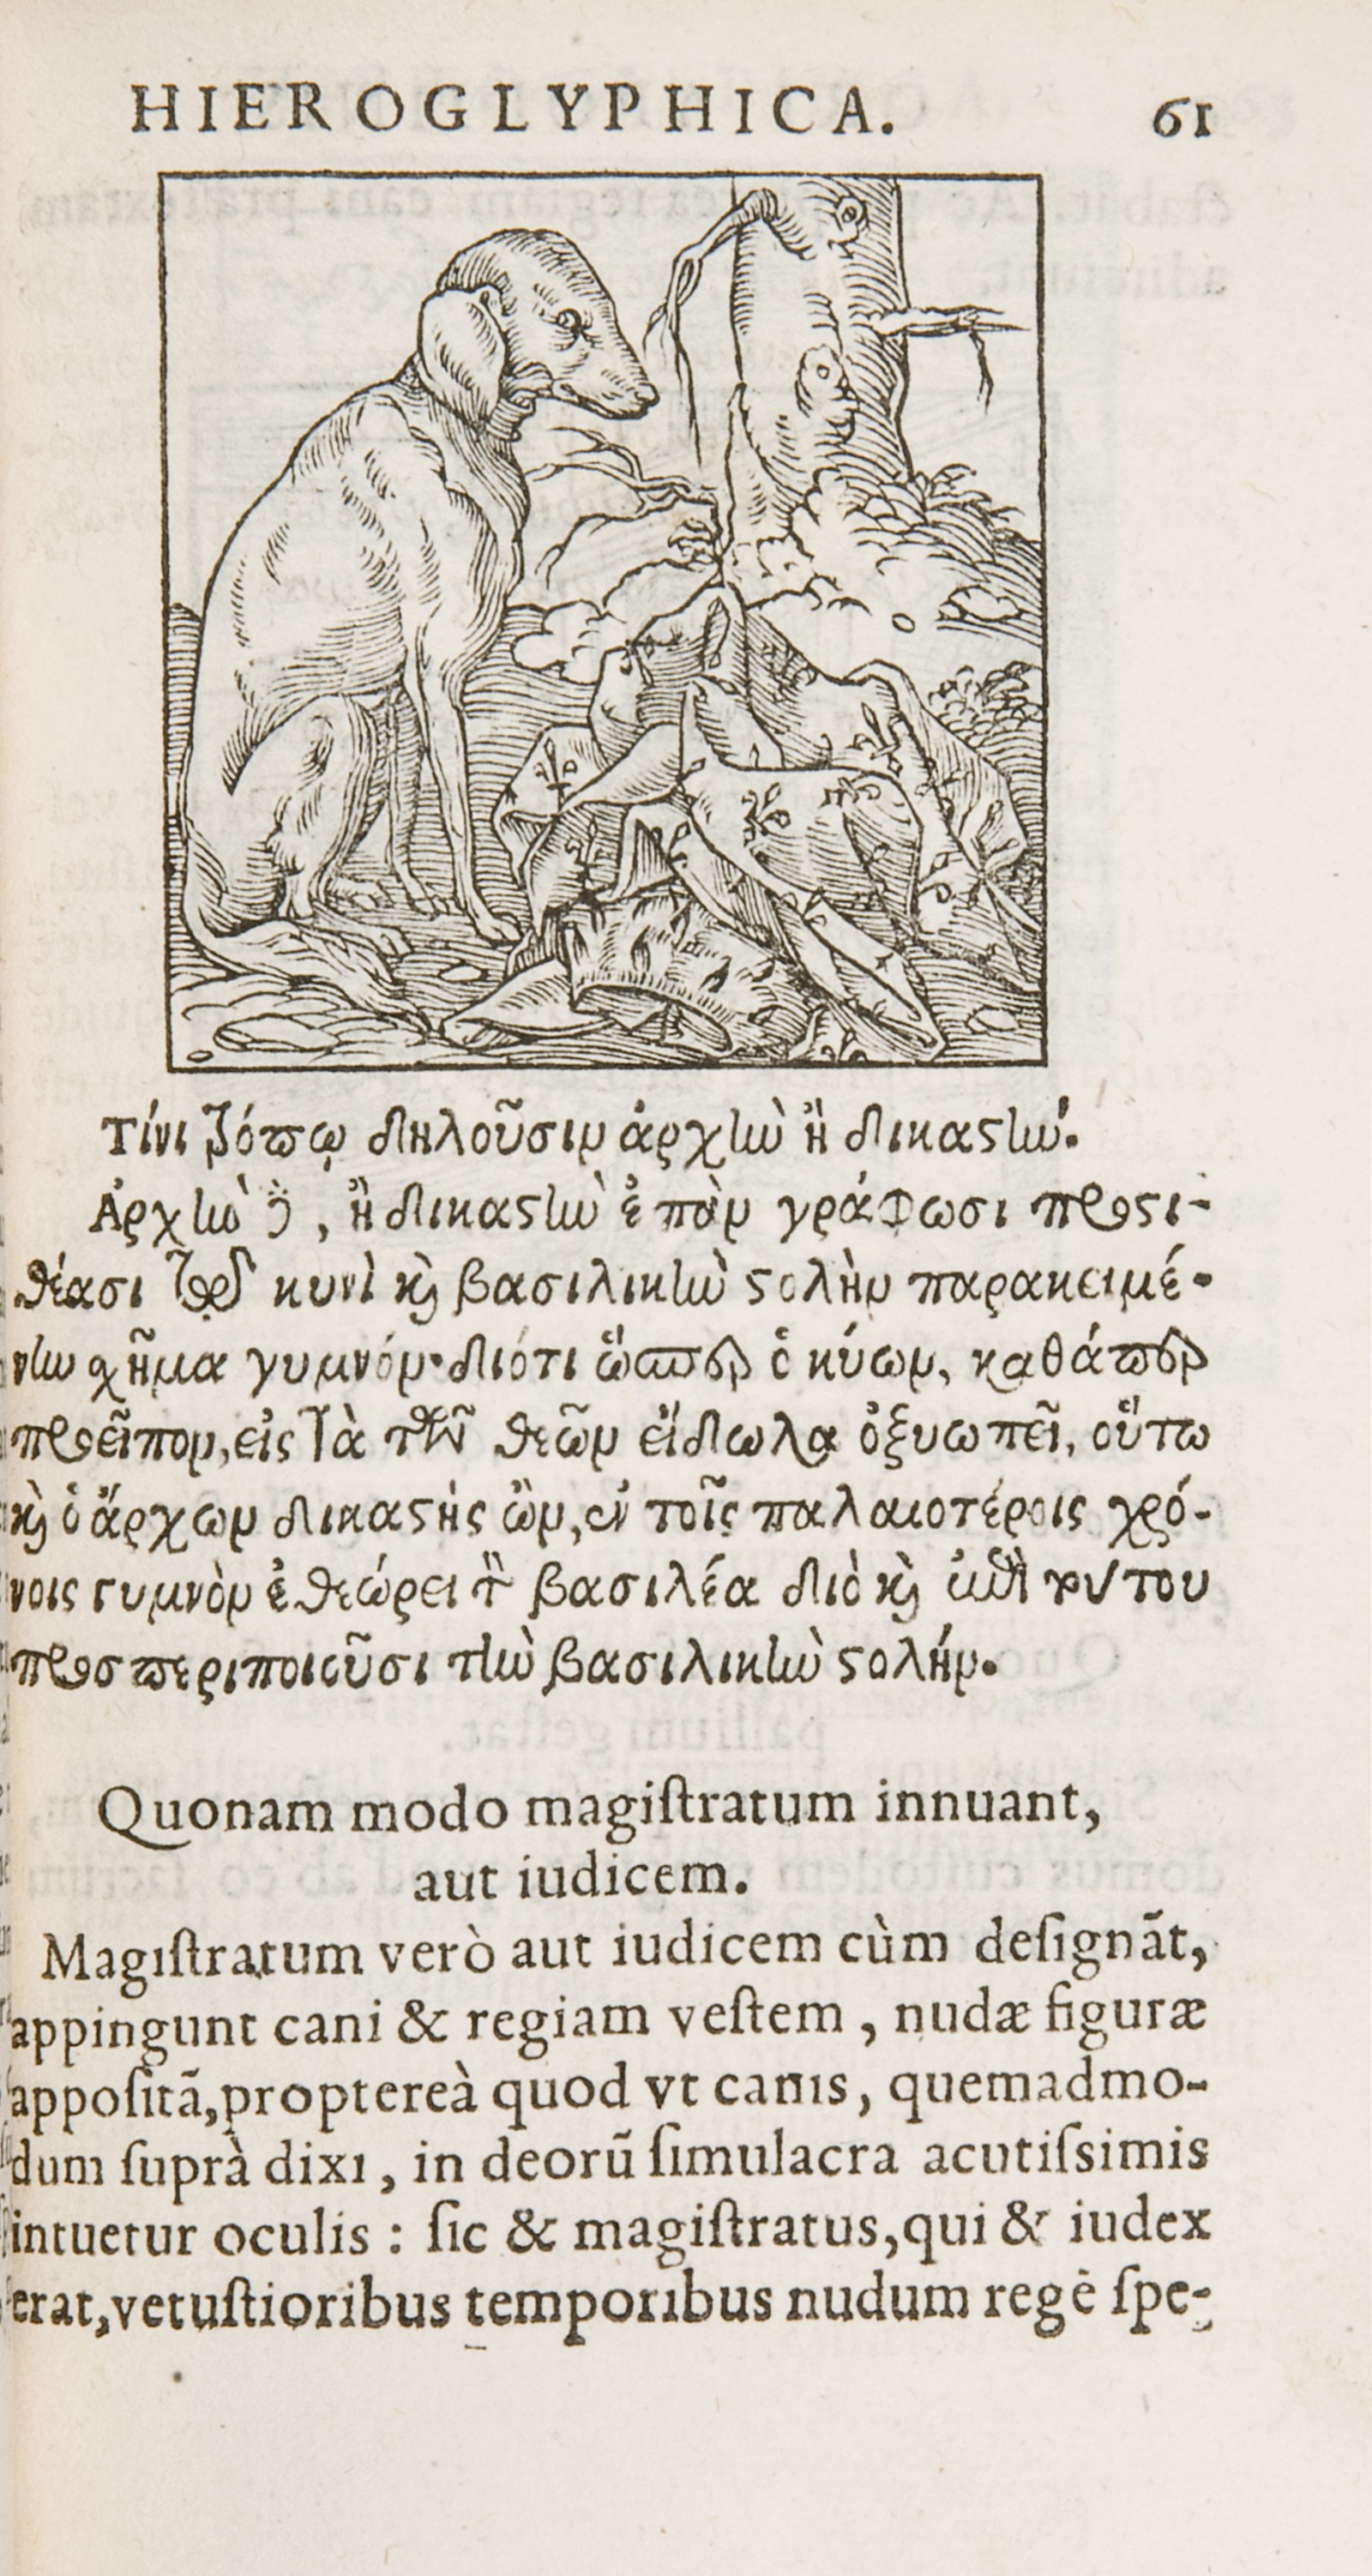 HIEROGLYPHICA. 61
Τίνι τρόπῳ δηλοῦσιν ἀρχὴν ἢ δικαστήν.
Ἀρχὴν δὲ, ἢ δικαστὴν ἐπὰν γράφωσι προστι-
θέασι τῷ κυνὶ καὶ βασιλικὴν στολὴν παρακειμέ-
νην σχῆμα γυμνόν. διότι ὥσπερ ὁ κύων, καθάπερ
προεῖπον, εἰς τὰ τῶν θεῶν εἴδωλα ὀξυωπεῖ, οὕτω
καὶ ὁ ἄρχων δικαστής ὢν, ἐν τοῖς παλαιοτέροις χρό-
νοις γυμνὸν ἐθεώρει τὸν βασιλέα διὸ καὶ ἐπὶ τούτου
προσπεριποιοῦσι τὴν βασιλικὴν στολήν.
Quonam modo magiſtratum innuant,
aut iudicem.
Magiſtratum verò aut iudicem cùm deſignãt,
appingunt cani & regiam veſtem, nudæ figuræ
appoſitã, proptereà quod vt canis, quemadmo-
dum ſuprà dixi, in deorũ ſimulacra acutiſsimis
intuetur oculis : ſic & magiſtratus, qui & iudex
erat, vetuſtioribus temporibus nudum regē ſpe-